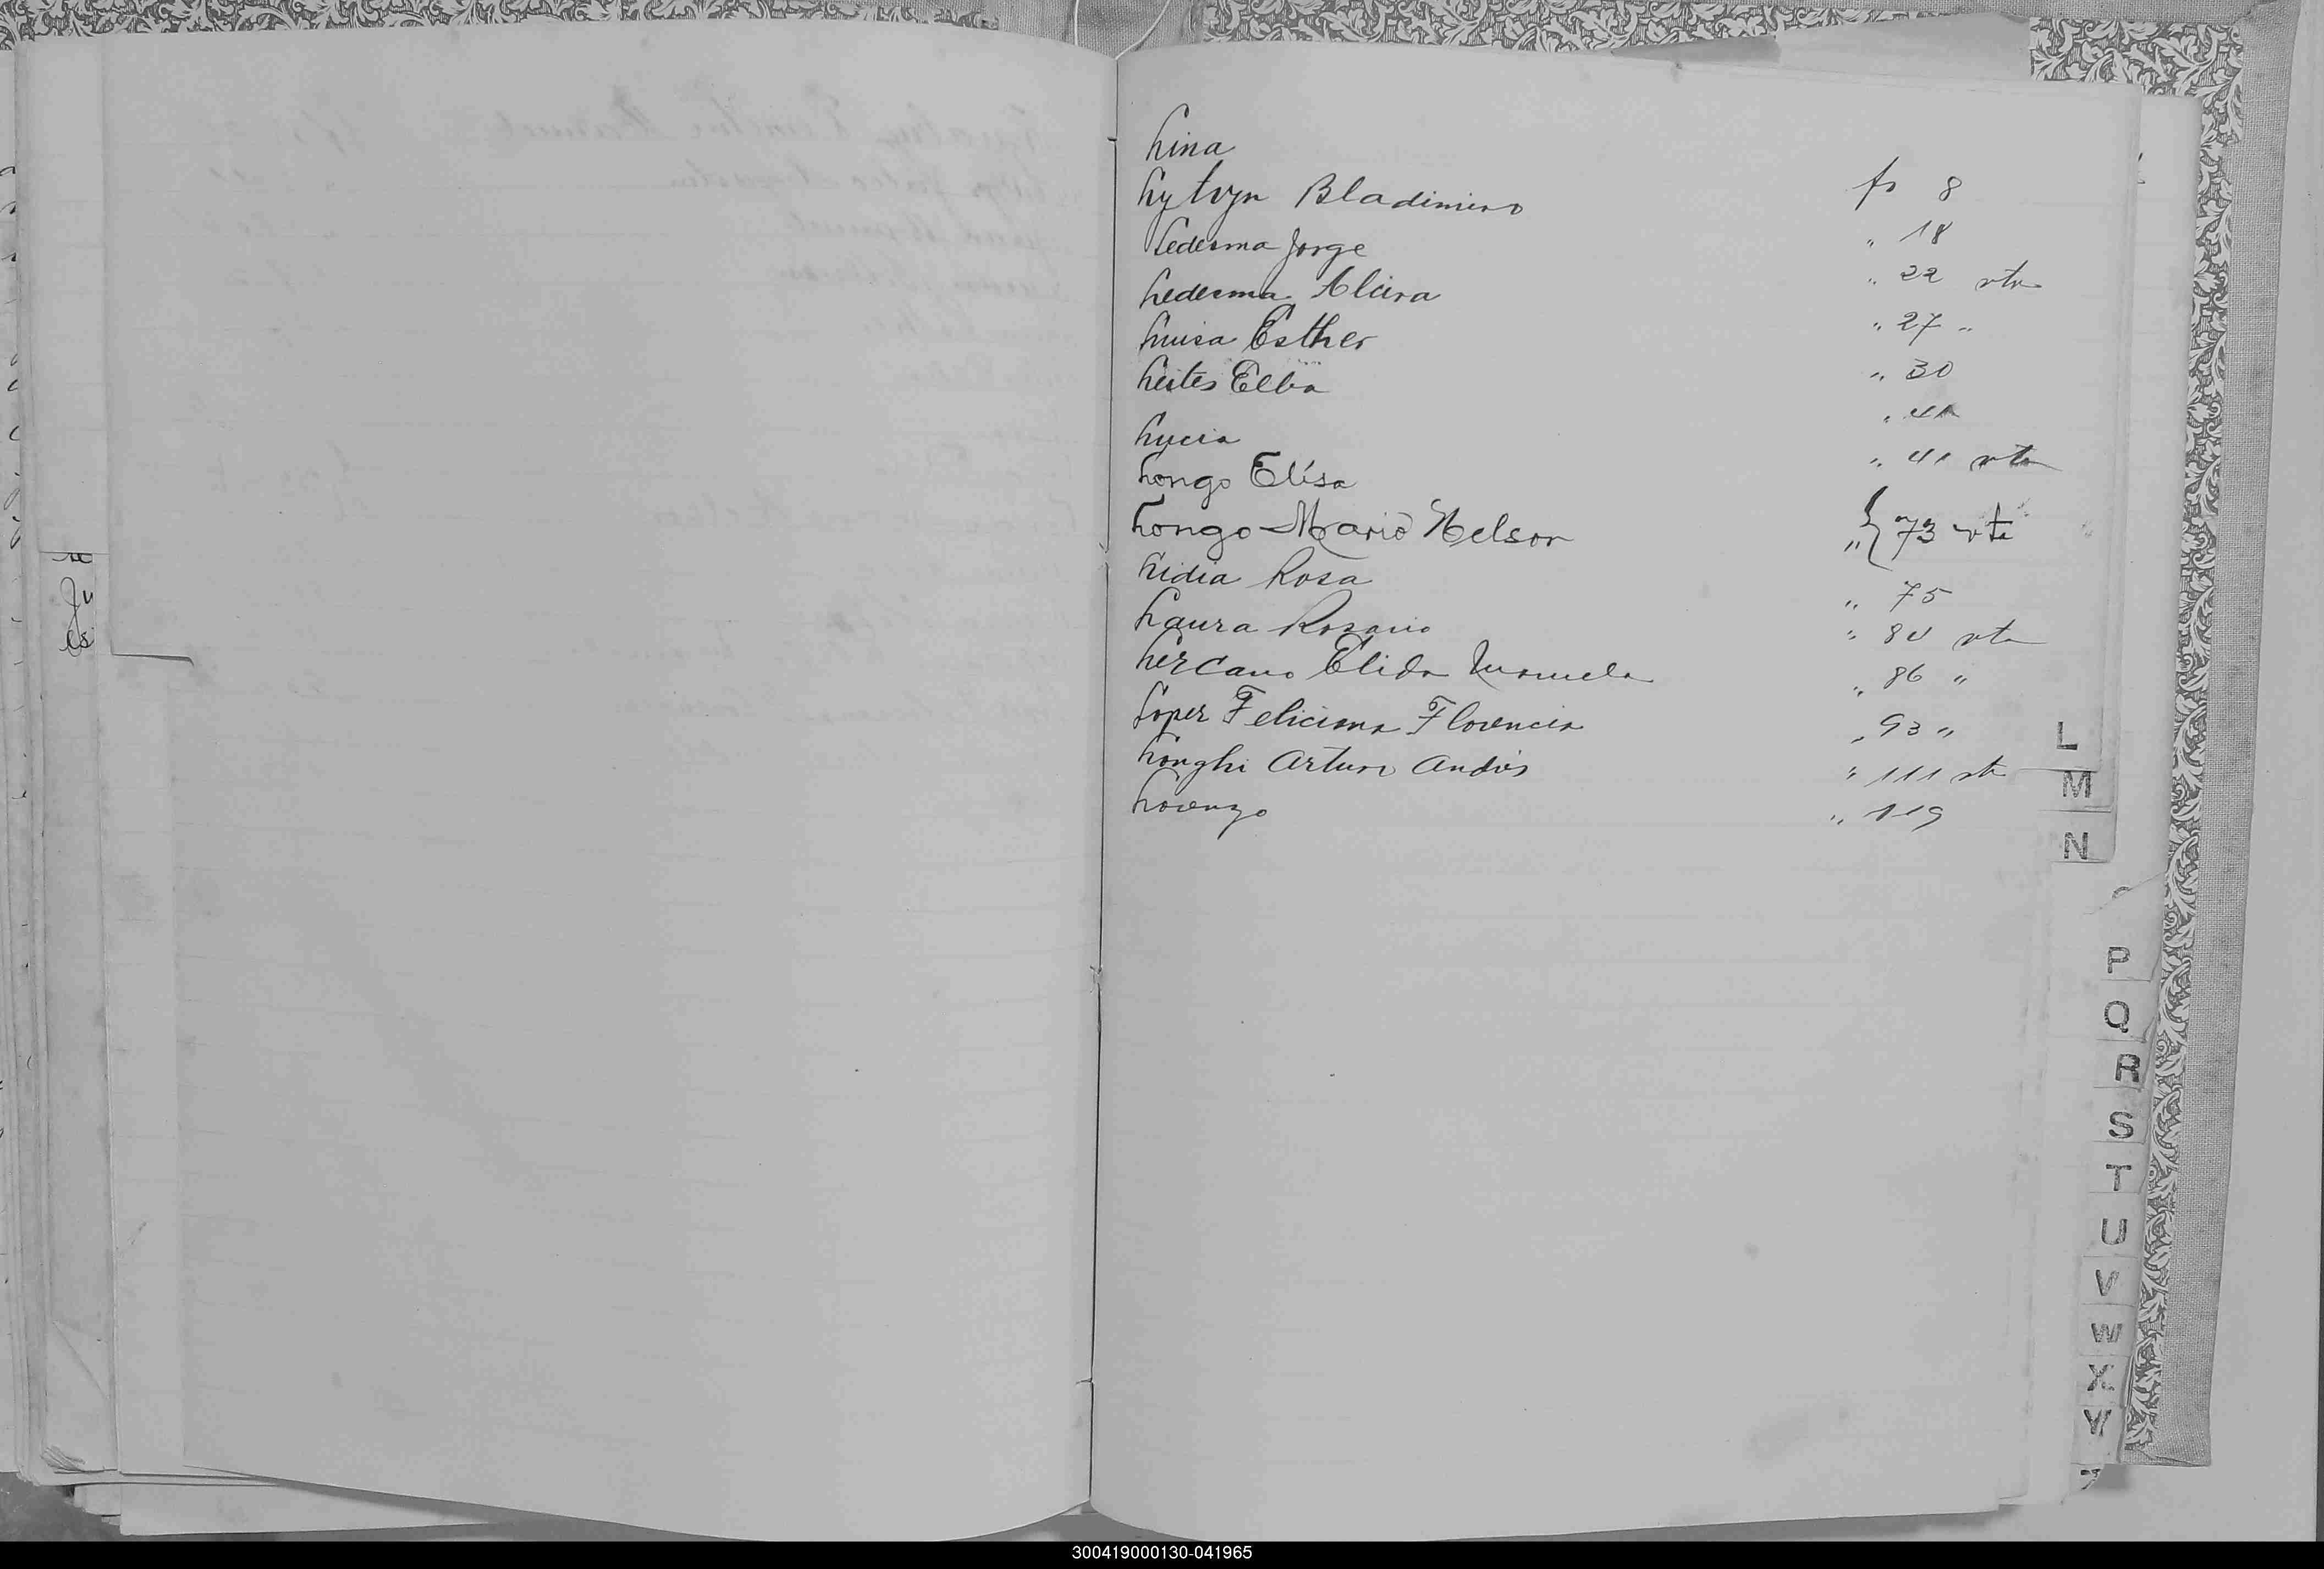 Lina fs 8
Lytvyn Bladimiro " 18
Ledesma Jorge " 22 vta
Ledesma Alcira " 27 "
Luisa Esther " 30
Leites Elba "
Lucia " 41 vta
Longo Elisa
Longo Mario Nelson " } 73 vta
Lidia Rosa " 75
Laura Rosario " 84 vta
Lezcano Elida Manuela " 86 "
Lopez Feliciana Florencia " 93 "
Longhi Arturo Andrés " 111 vta
Lorenzo " 119
L
M
N
P
Q
R
S
T
U
V
W
X
Y
300419000130-041965